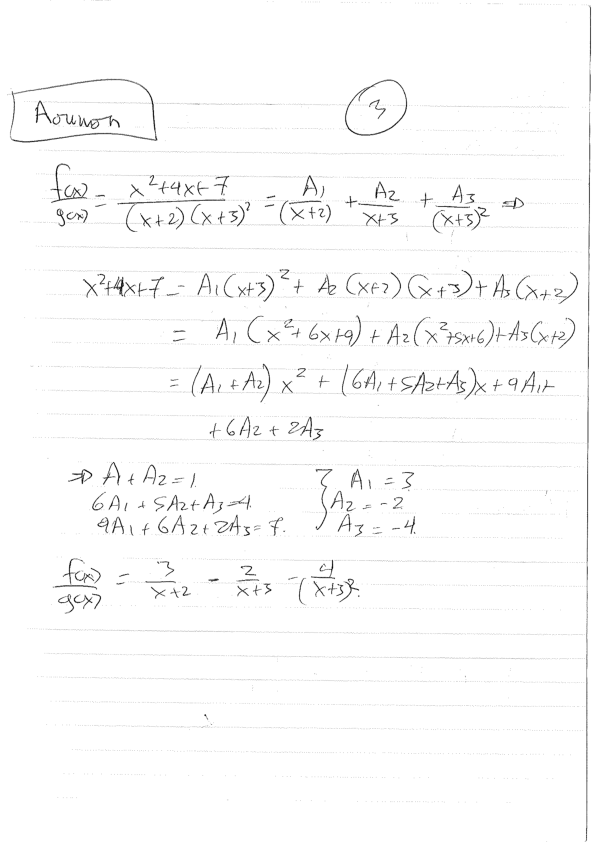 Aounon
3
f(x)/g(x) = (x²+4x+7)/((x+2)(x+3)²) = A₁/(x+2) + A₂/(x+3) + A₃/(x+3)² ⇒
x²+4x+7 = A₁(x+3)² + A₂(x+2)(x+3) + A₃(x+2)
= A₁(x²+6x+9) + A₂(x²+5x+6) + A₃(x+2)
= (A₁+A₂)x² + (6A₁+5A₂+A₃)x + 9A₁+
+6A₂+2A₃
⇒ A+A₂=1. } A₁=3
6A₁+5A₂+A₃=4. A₂=-2
9A₁+6A₂+2A₃=7. A₃=-4.
f(x)/g(x) = 3/(x+2) - 2/(x+3) - 4/(x+3)².